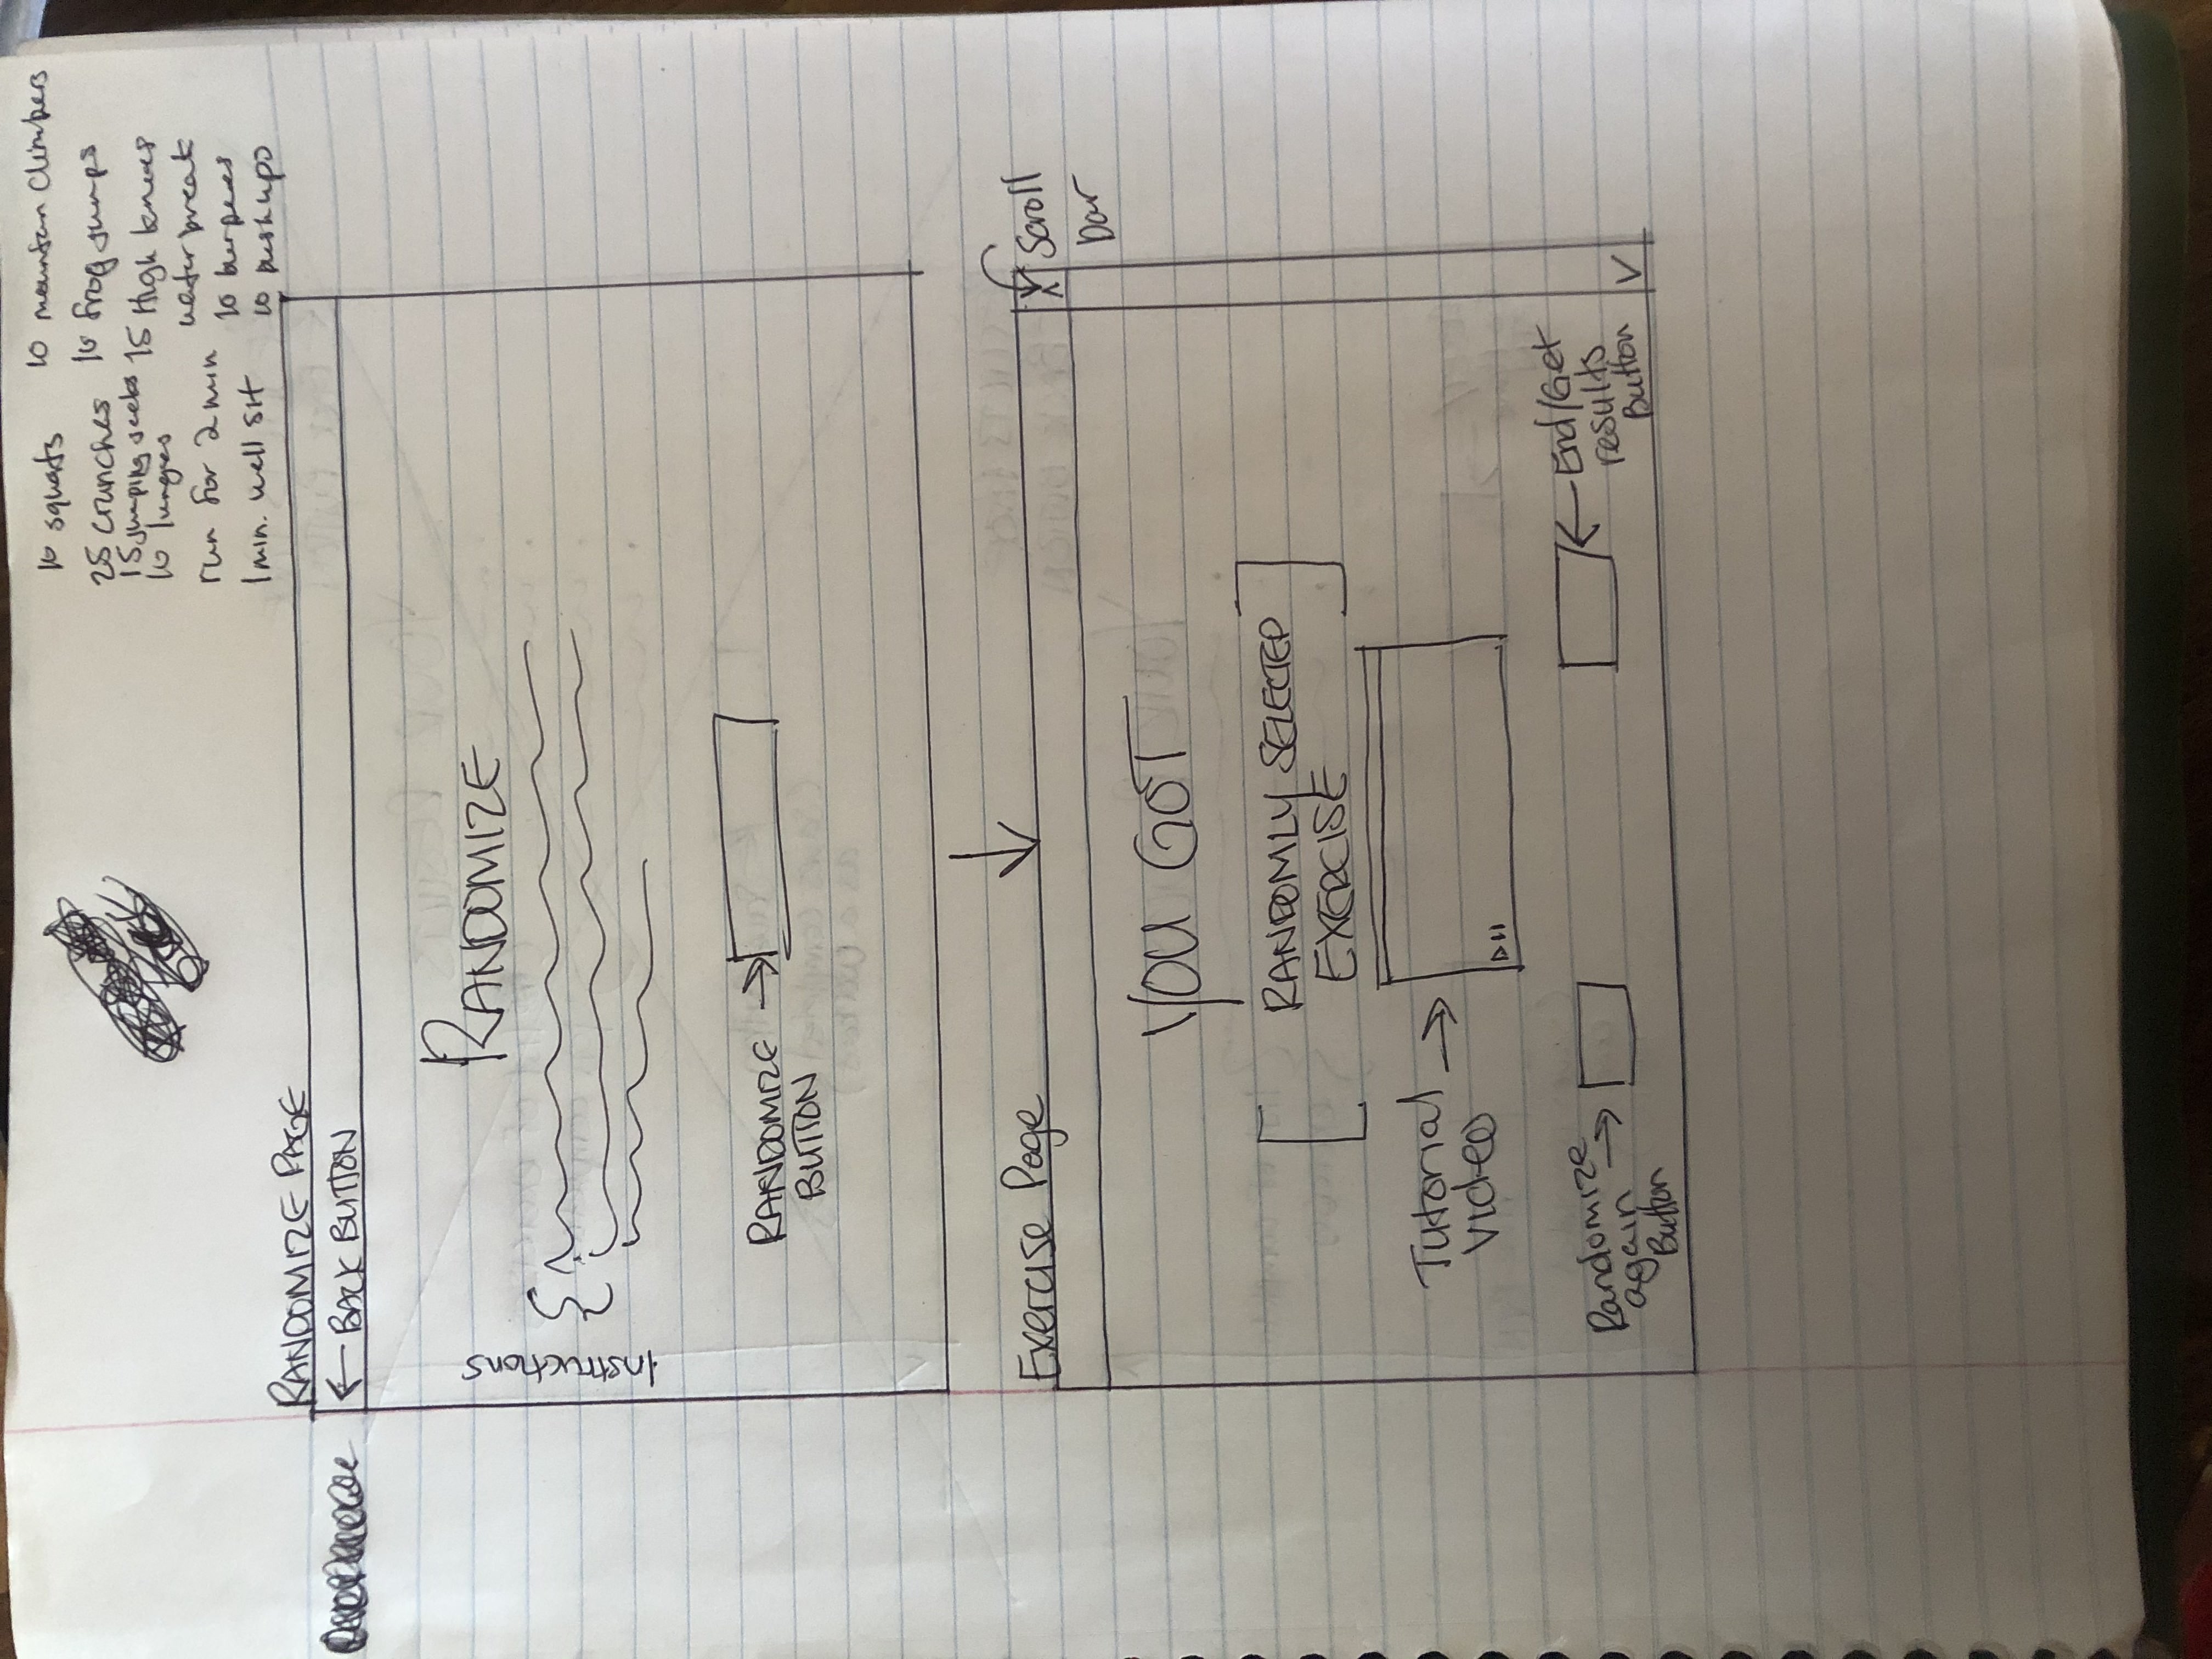 10 squats
25 crunches
15 jumping jacks
10 lunges
run for 2 min
1 min. wall sit
10 mountain climbers
10 frog jumps
15 High knees
water break
10 burpees
10 push ups
RANDOMIZE PAGE
← BACK BUTTON
RANDOMIZE
Instructions
RANDOMIZE
BUTTON
Exercise Page
Scroll
bar
YOU GOT
RANDOMLY SELECTED
EXERCISE
Tutorial
video
Randomize
again
Button
End/Get
results
Button